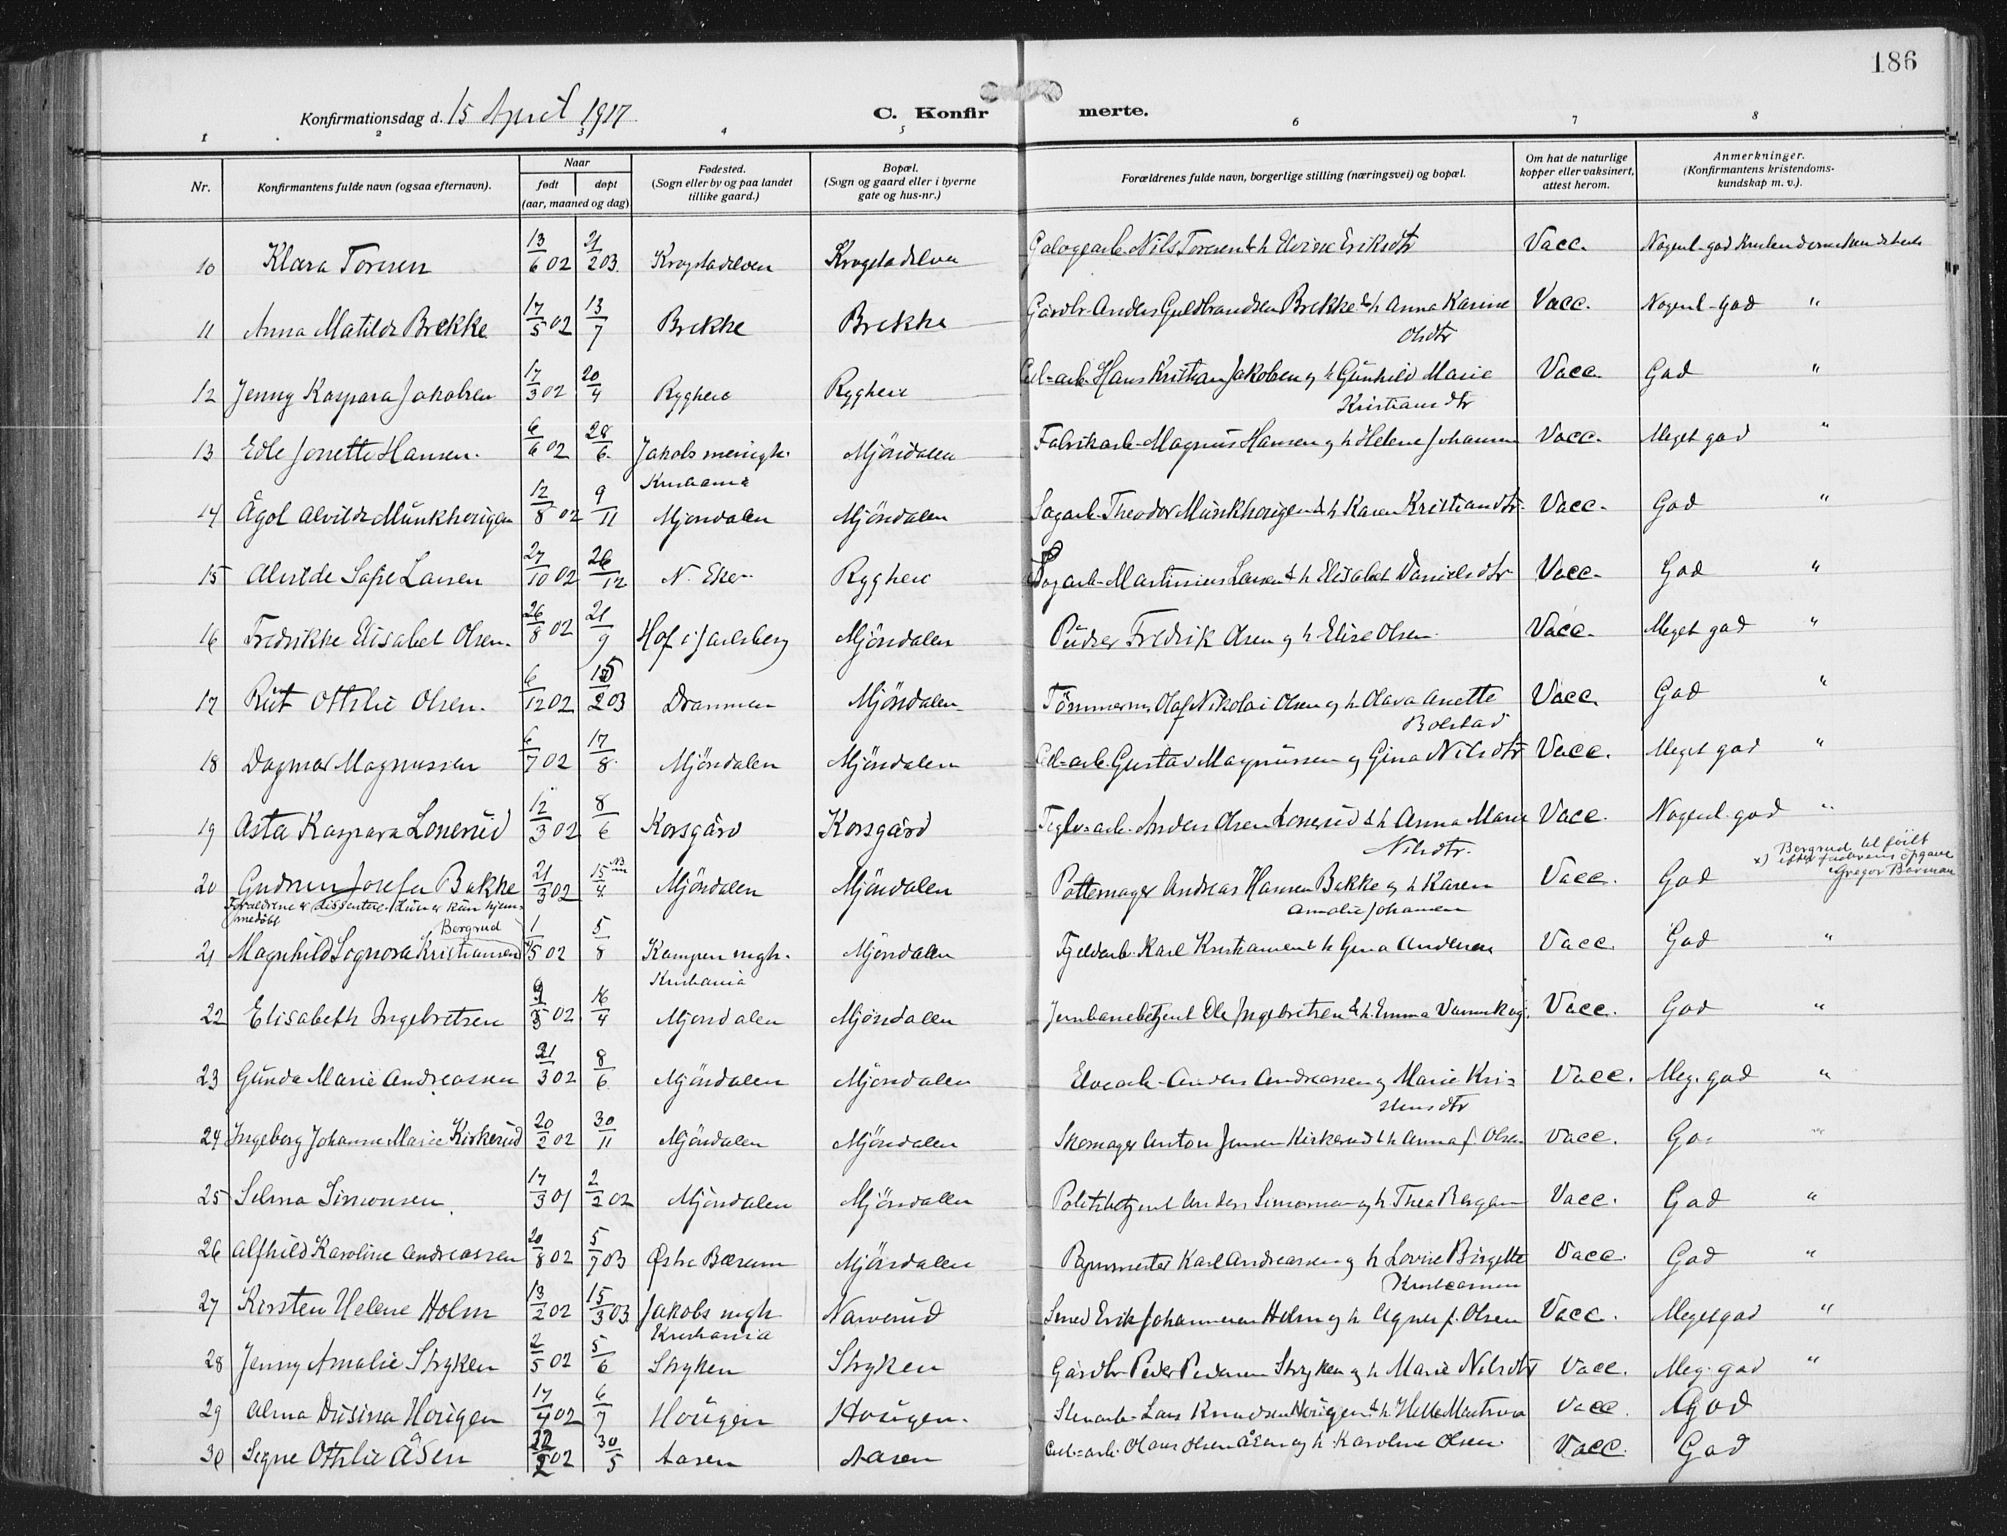 186
Konfirmationsdag d. 15 April 1917. C. Konfirmerte.
1 2 3 4 5 6 7 8
Nr. Konfirmantens fulde navn (ogsaa efternavn). Naar født døpt (aar, maaned og dag) Fødested. (Sogn eller by og paa landet tillike gaard.) Bopæl. (Sogn og gaard eller i byerne gate og hus-nr.) Forældrenes fulde navn, borgerlige stilling (næringsvei) og bopæl. Om hat de naturlige kopper eller vaksinert, attest herom. Anmerkninger. (Konfirmantens kristendomskundskap m. v.).
10 Klara Toresen 13/6 02 21/2 03. Krogstadelven Krogstadelven Nils Toresen & h Elvine Eriksdtr Vacc. Nogenl. god
11 Anna Matilde Brekke 17/5 02 13/7 Brekke Brekke Gårdbr. Anders Guldbrandsen Brekke & h Anna Karine Olsdtr Vacc. Nogenl. god "
12 Jenny Kaspara Jakobsen 17/3 02 20/4 Ryghere Ryghere Cel=arb. Hans Kristian Jakobsen og h Gunhild Marie Kristiansdtr Vacc. God "
13 Edle Jonette Hansen. 6/6 02 28/6. Jakobs menigh. Kristiania Mjöndalen Fabrikarb. Magnus Hansen og h Helene Johansen Vacc. Meget god "
14 Ågot Alvilde Munkhougen 12/8 02 9/11 Mjöndalen Mjöndalen Sagarb. Theodor Munkhougen & h Karen Kristiansdtr. Vacc. God "
15 Alvilde Sofie Larsen 27/10 02 26/12 N. Eker. Ryghere Sagarb. Martinius Larsen & h Elisabet Danielsdtr Vacc. God "
16 Fredrikke Elisabet Olsen. 26/8 02 21/9 Hof i Jarlsberg Mjöndalen Pudser Fredrik Olsen og h Elise Olsen. Vacc. Meget god "
17 Rut Othilie Olsen. 6/12 02 15/2 03 Drammen Mjöndalen Tömmerm. Olaf Nikolai Olsen og h Olava Anette Bolstad Vacc. God "
18 Dagmar Magnussen 6/7 02 17/8 Mjöndalen Mjöndalen Cel=arb. Gustav Magnussen og Gina Nilsdtr Vacc. Meget god "
19 Asta Kaspara Lonerud 12/3 02 8/6 Korsgård Korsgård Teglv=arb. Anders Olsen Lonerud & h Anna Marie Nilsdtr. Vacc. Nogenl. god "
20 Gudrun Josefa Bakke 21/3 02 15/4 Mjöndalen Mjöndalen Pottemager Andreas Hansen Bakke og h Karen Amalie Johansen Vacc. God
Forældrene er dissentere. Hun er kun hjemmedöbt
x) Bergrud tilföiet efter faderens opgave Gregor Borman
21 Magnhild Signora Kristiansen Bergrud 1/5 02 5/8 Kampen mgh. Kristiania Mjöndalen Karl Kristiansen & h Gina Andersen Vacc. God "
22 Elisabeth Ingebretsen 9/3 02 16/4 Mjöndalen Mjöndalen Jernbanebetjent Ole Ingebretsen & h. Emma Vannskog. Vacc. God "
23 Gunda Marie Andreassen 21/3 02 8/6. Mjöndalen Mjöndalen Elvearb. Anders Andreassen og Marie Kristensdtr Vacc. Meg. god "
24 Ingeborg Johanne Marie Kirkerud 20/2 02 30/11 Mjöndalen Mjöndalen Skomager Anton Jensen Kirkerud & h Anna f. Olsen Vacc. Go "
25 Selma Simonsen. 17/3 01 2/2 02 Mjöndalen Mjöndalen Politibetjent Anders Simonsen og h Thea Bergan Vacc. God "
26 Alfhild Karoline Andreassen 20/8 02 5/7 03 Østre Bærum Mjöndalen Karl Andreassen og h Lovise Birgitte Kristiansen Vacc. God "
27 Kirsten Helene Holm 13/2 02 15/3 03 Jakobs mgh Kristiania Narverud Smed Erik Johannesen Holm og h. Agnes f. Olsen Vacc. Meget god "
28 Jenny Amalie Stryken 2/5 02 5/6 Stryken Stryken Gårdbr Peder Pedersen Stryken og h Marie Nilsdtr Vacc. Meg. god "
29 Alma Dusina Hougen 17/4 02 6/7 Hougen Hougen. Stenarb. Lars Knudsen Hougen & h Helle Vacc. God
30 Signe Othilie Åsen 22/2 02 30/5 Aasen Aasen Cel=arb. Olaus Olsen Åsen og h. Karoline Olsen. Vacc. God